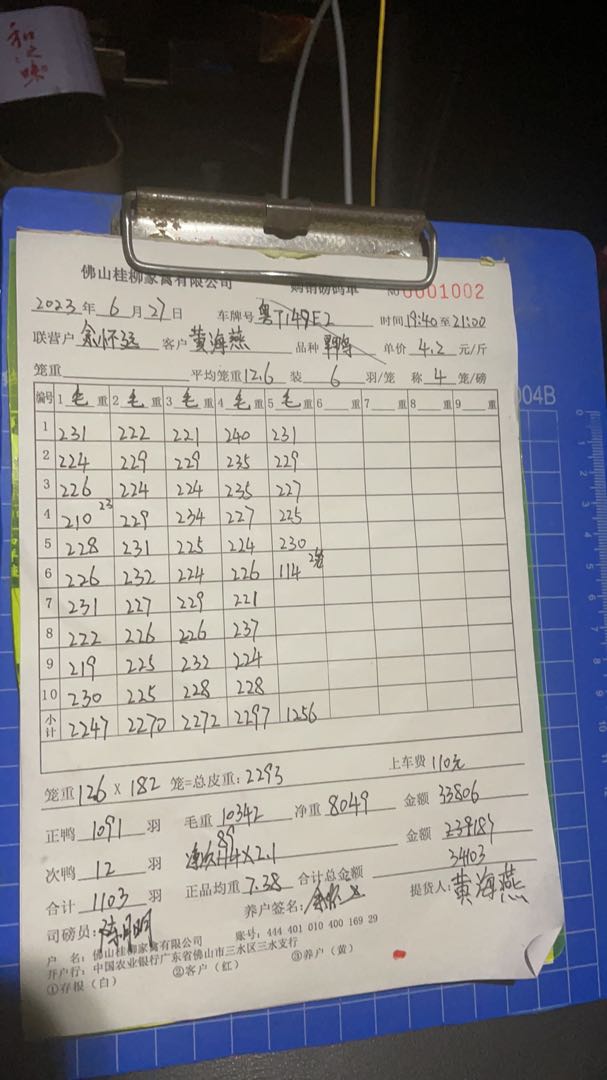 和之味
佛山桂柳家禽有限公司 购销磅码单 № 0001002
2023年 6月 27日 车牌号 粤T149E2 时间 19:40至21:00
联营户 余怀远 客户 黄海燕 品种 单价 4.2 元/斤
笼重 平均笼重 12.6 装 6 羽/笼 称 4 笼/磅
编号 1 毛 重 2 毛 重 3 毛 重 4 毛 重 5 毛 重 6 重 7 重 8 重 9 重
1 231 222 221 240 231
2 224 229 229 235 229
3 226 224 224 235 227
4 210 23 229 234 227 225
5 228 231 225 224 230
6 226 232 224 226 114
7 231 227 229 221
8 222 226 226 237
9 219 225 232 224
10 230 225 228 228
小计 2247 2270 2272 2297 1256
上车费 110元
笼重 12.6 X 182 笼=总皮重: 2293
正鸭 1091 羽 毛重 10342 净重 8049 金额 33806
次鸭 12 羽 X2.1 金额
合计 1103 羽 正品均重 7.38 合计总金额 3403
司磅员: 养户签名: 提货人: 黄海燕
户 名: 佛山桂柳家禽有限公司 账号: 444 401 010 400 169 29
开户行: 中国农业银行广东省佛山市三水区三水支行
①存根（白） ②客户（红） ③养户（黄）
004B